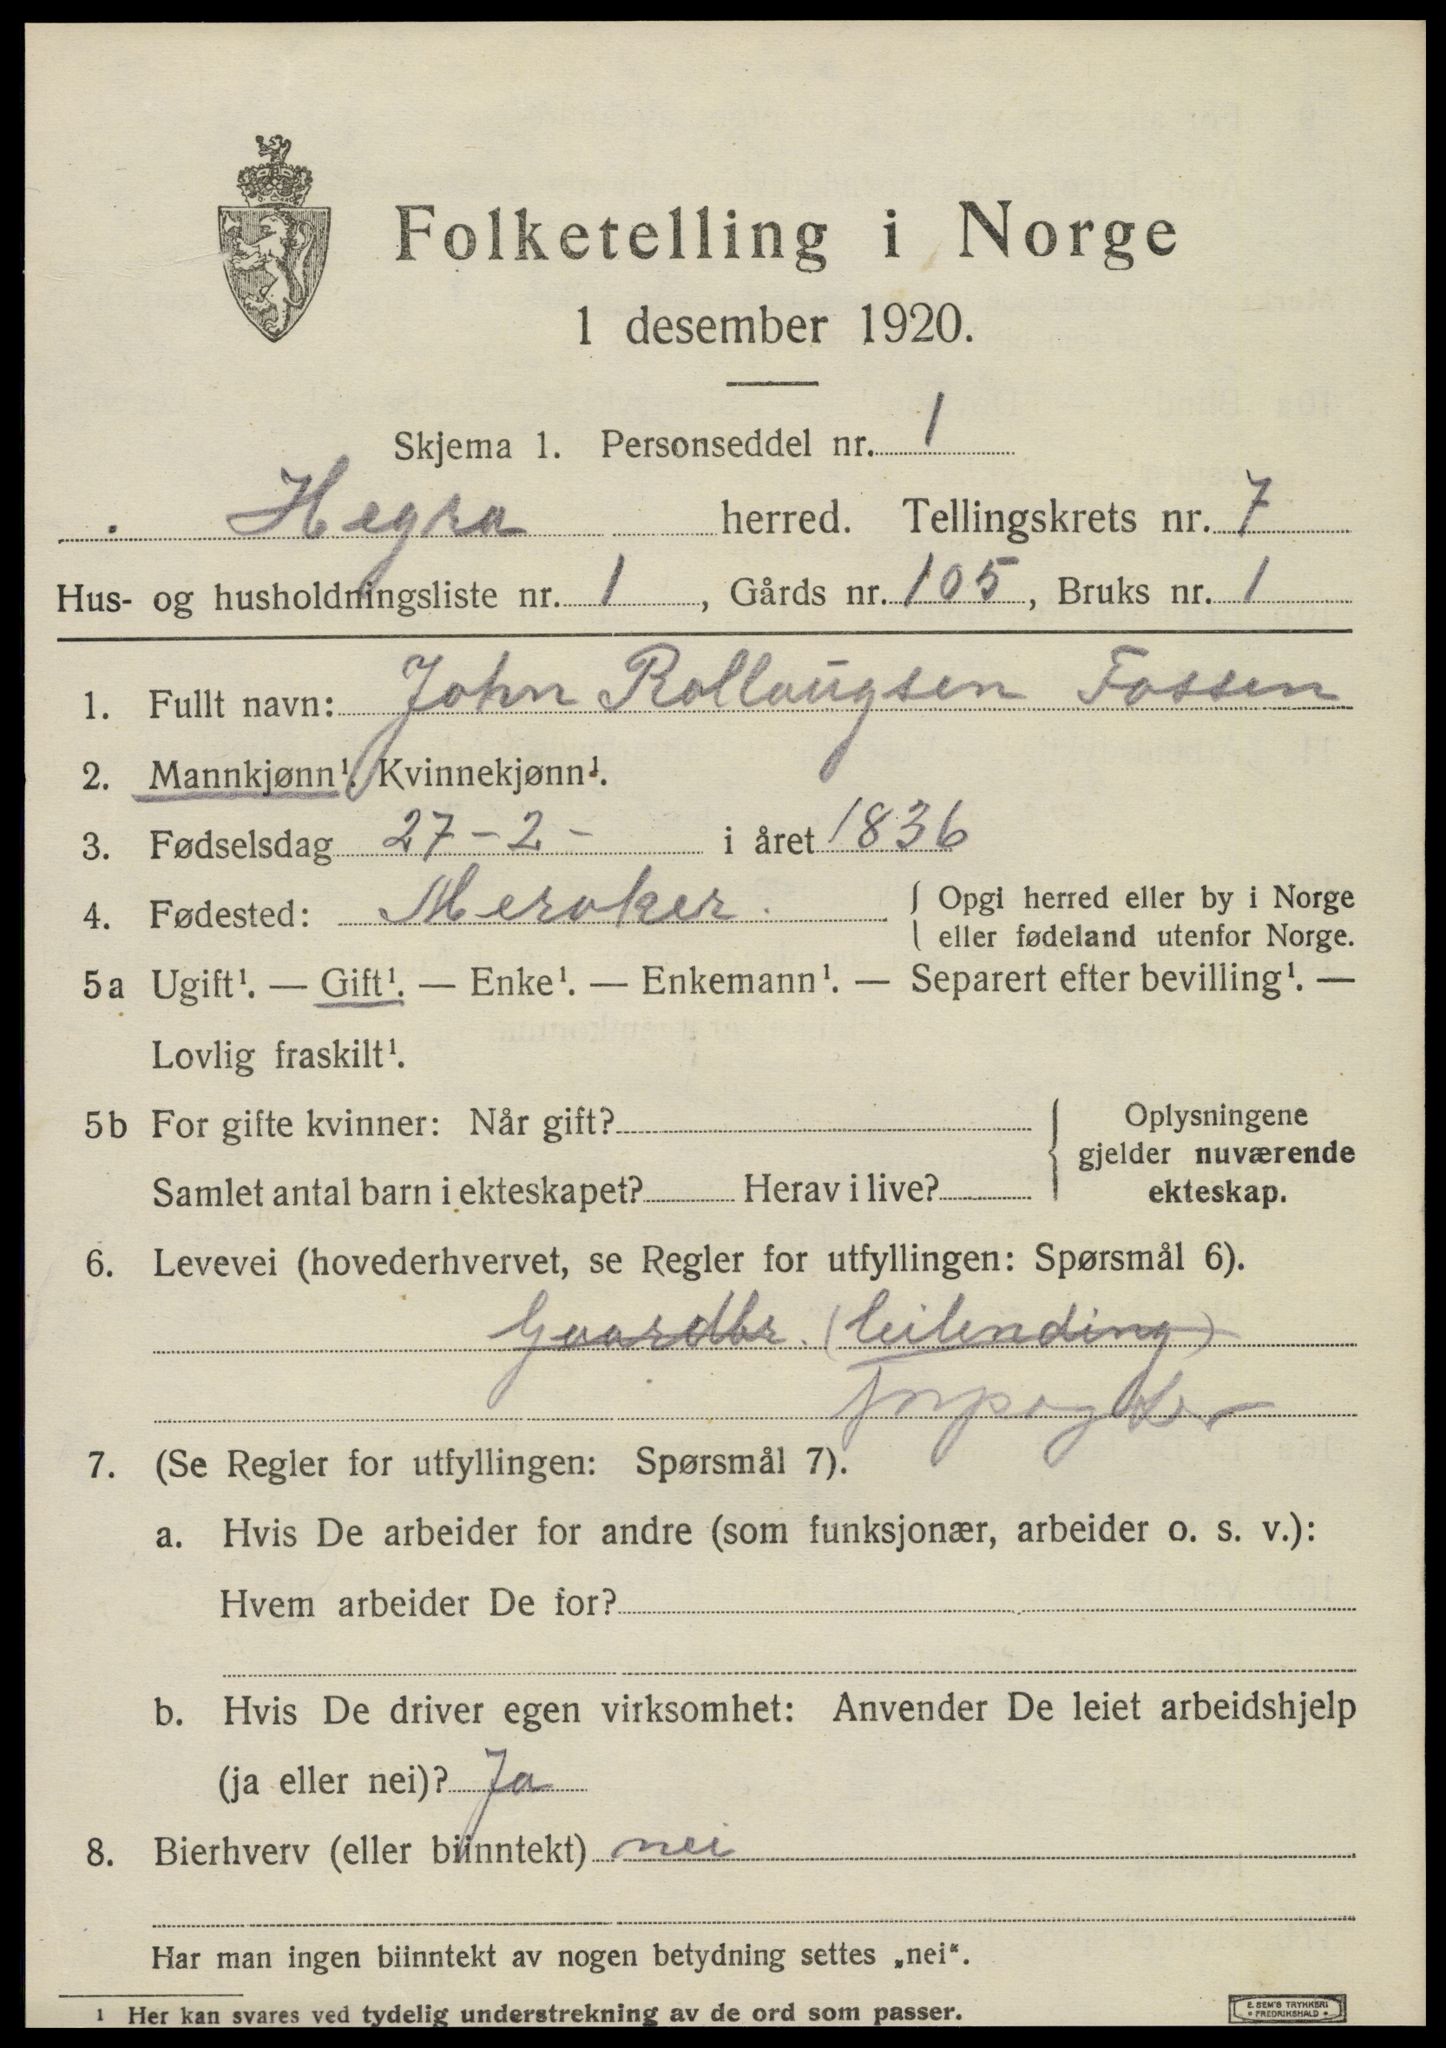 Folketelling i Norge
1 desember 1920.
Skjema 1. Personseddel nr. 1
Hegra herred. Tellingskrets nr. 7
Hus- og husholdningsliste nr. 1, Gårds nr. 105, Bruks nr. 1
1. Fullt navn: John Rollaugsen Fossen
2. Mannkjønn¹. Kvinnekjønn¹.
3. Fødselsdag 27 - 2 - i året 1836
4. Fødested: Meroker. { Opgi herred eller by i Norge
eller fødeland utenfor Norge.
5a Ugift¹. — Gift¹. — Enke¹. — Enkemann¹. — Separert efter bevilling¹. —
Lovlig fraskilt¹.
5b For gifte kvinner: Når gift?
Samlet antal barn i ekteskapet? Herav i live?
{ Oplysningene
gjelder nuværende
ekteskap.
6. Levevei (hovederhvervet, se Regler for utfyllingen: Spørsmål 6).
Gaardbr. (leilending)
forpagter
7. (Se Regler for utfyllingen: Spørsmål 7).
a. Hvis De arbeider for andre (som funksjonær, arbeider o. s. v.):
Hvem arbeider De for?
b. Hvis De driver egen virksomhet: Anvender De leiet arbeidshjelp
(ja eller nei)? Ja
8. Bierhverv (eller biinntekt) nei
Har man ingen biinntekt av nogen betydning settes „nei“.
¹ Her kan svares ved tydelig understrekning av de ord som passer.
E. SEM'S TRYKKERI
• FREDRIKSHALD •